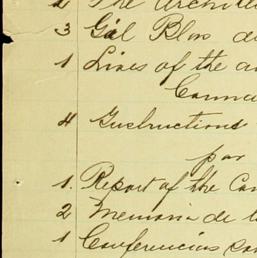 2 The Archite
3 Gil Blas de
1 Lives of the a
Conne
4 Instructions
por
1. Report of the Com
2 Memoria de l
1 Conferencias con